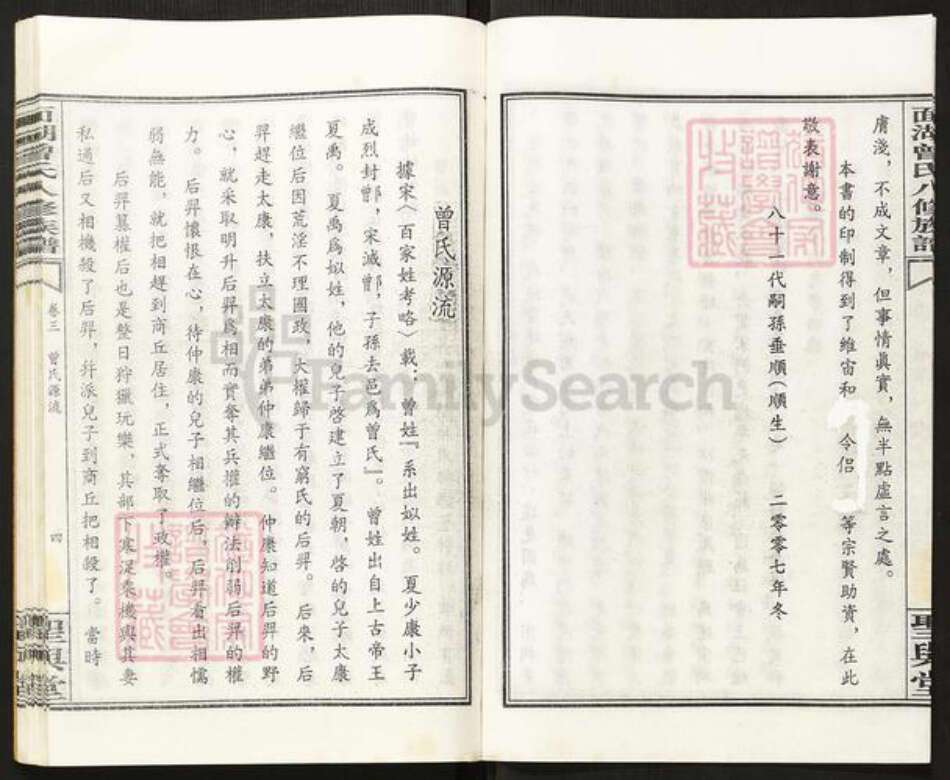 面湖曾氏八修族譜
膚淺，不成文章，但事情眞實，無半點虛言之處。
本書的印制得到了維宙和 令侶 等宗賢助資，在此
敬表謝意。
八十一代嗣孫垂順（順生） 二零零七年冬
曾氏源流
據宋〈百家姓考略〉載：曾姓『系出姒姓。夏少康小子
成烈封鄫，宋滅鄫，子孫去邑爲曾氏』。曾姓出自上古帝王
夏禹。夏禹爲姒姓，他的兒子啓建立了夏朝，啓的兒子太康
繼位后因荒淫不理國政，大權歸于有窮氏的后羿。后來，后
羿趕走太康，扶立太康的弟弟仲康繼位。仲康知道后羿的野
心，就采取明升后羿爲相而實奪其兵權的辦法削弱后羿的權
力。后羿懷恨在心，待仲康的兒子相繼位后，后羿看出相懦
弱無能，就把相趕到商丘居住，正式奪取了政權。
后羿篡權后也是整日狩獵玩樂，其部下寒浞乘機與其妻
私通后又相機殺了后羿，幷派兒子到商丘把相殺了。當時
卷三 曾氏源流
四
FamilySearch